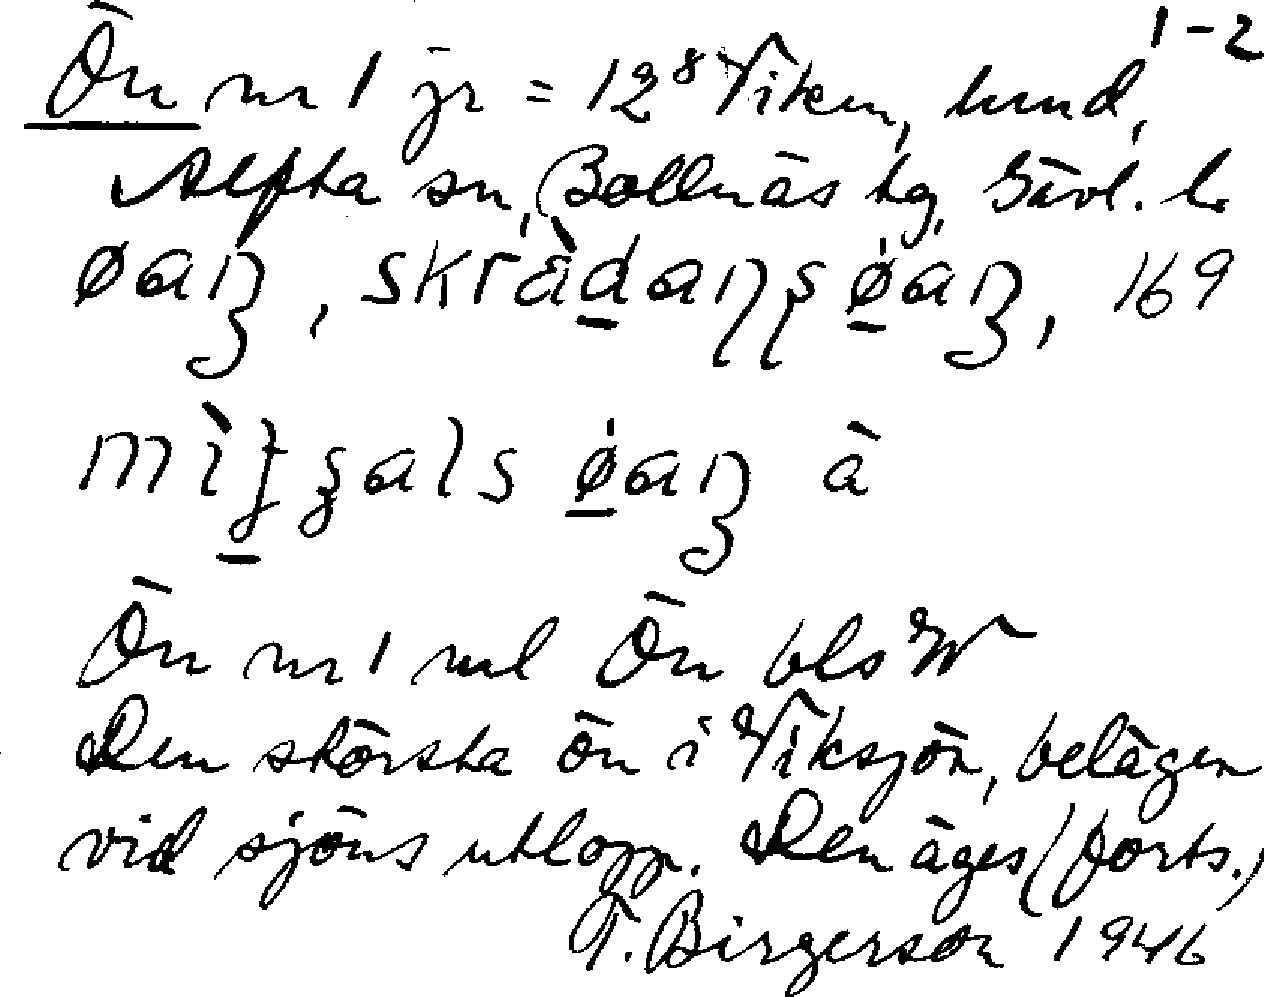 1-2
Ön nr 1 jr = 12⁸ Viken, lund,
Alfta sn, Bollnäs tg, Gävl. l.
øaŋ, skrà̱daŋs ø̱aŋ, 169
øaŋ à
Ön nr 1 ml Ön bls W
Den största ön i Viksjön, belägen
vid sjöns utlopp. Den äges (forts.)
T. Birgerson 1946